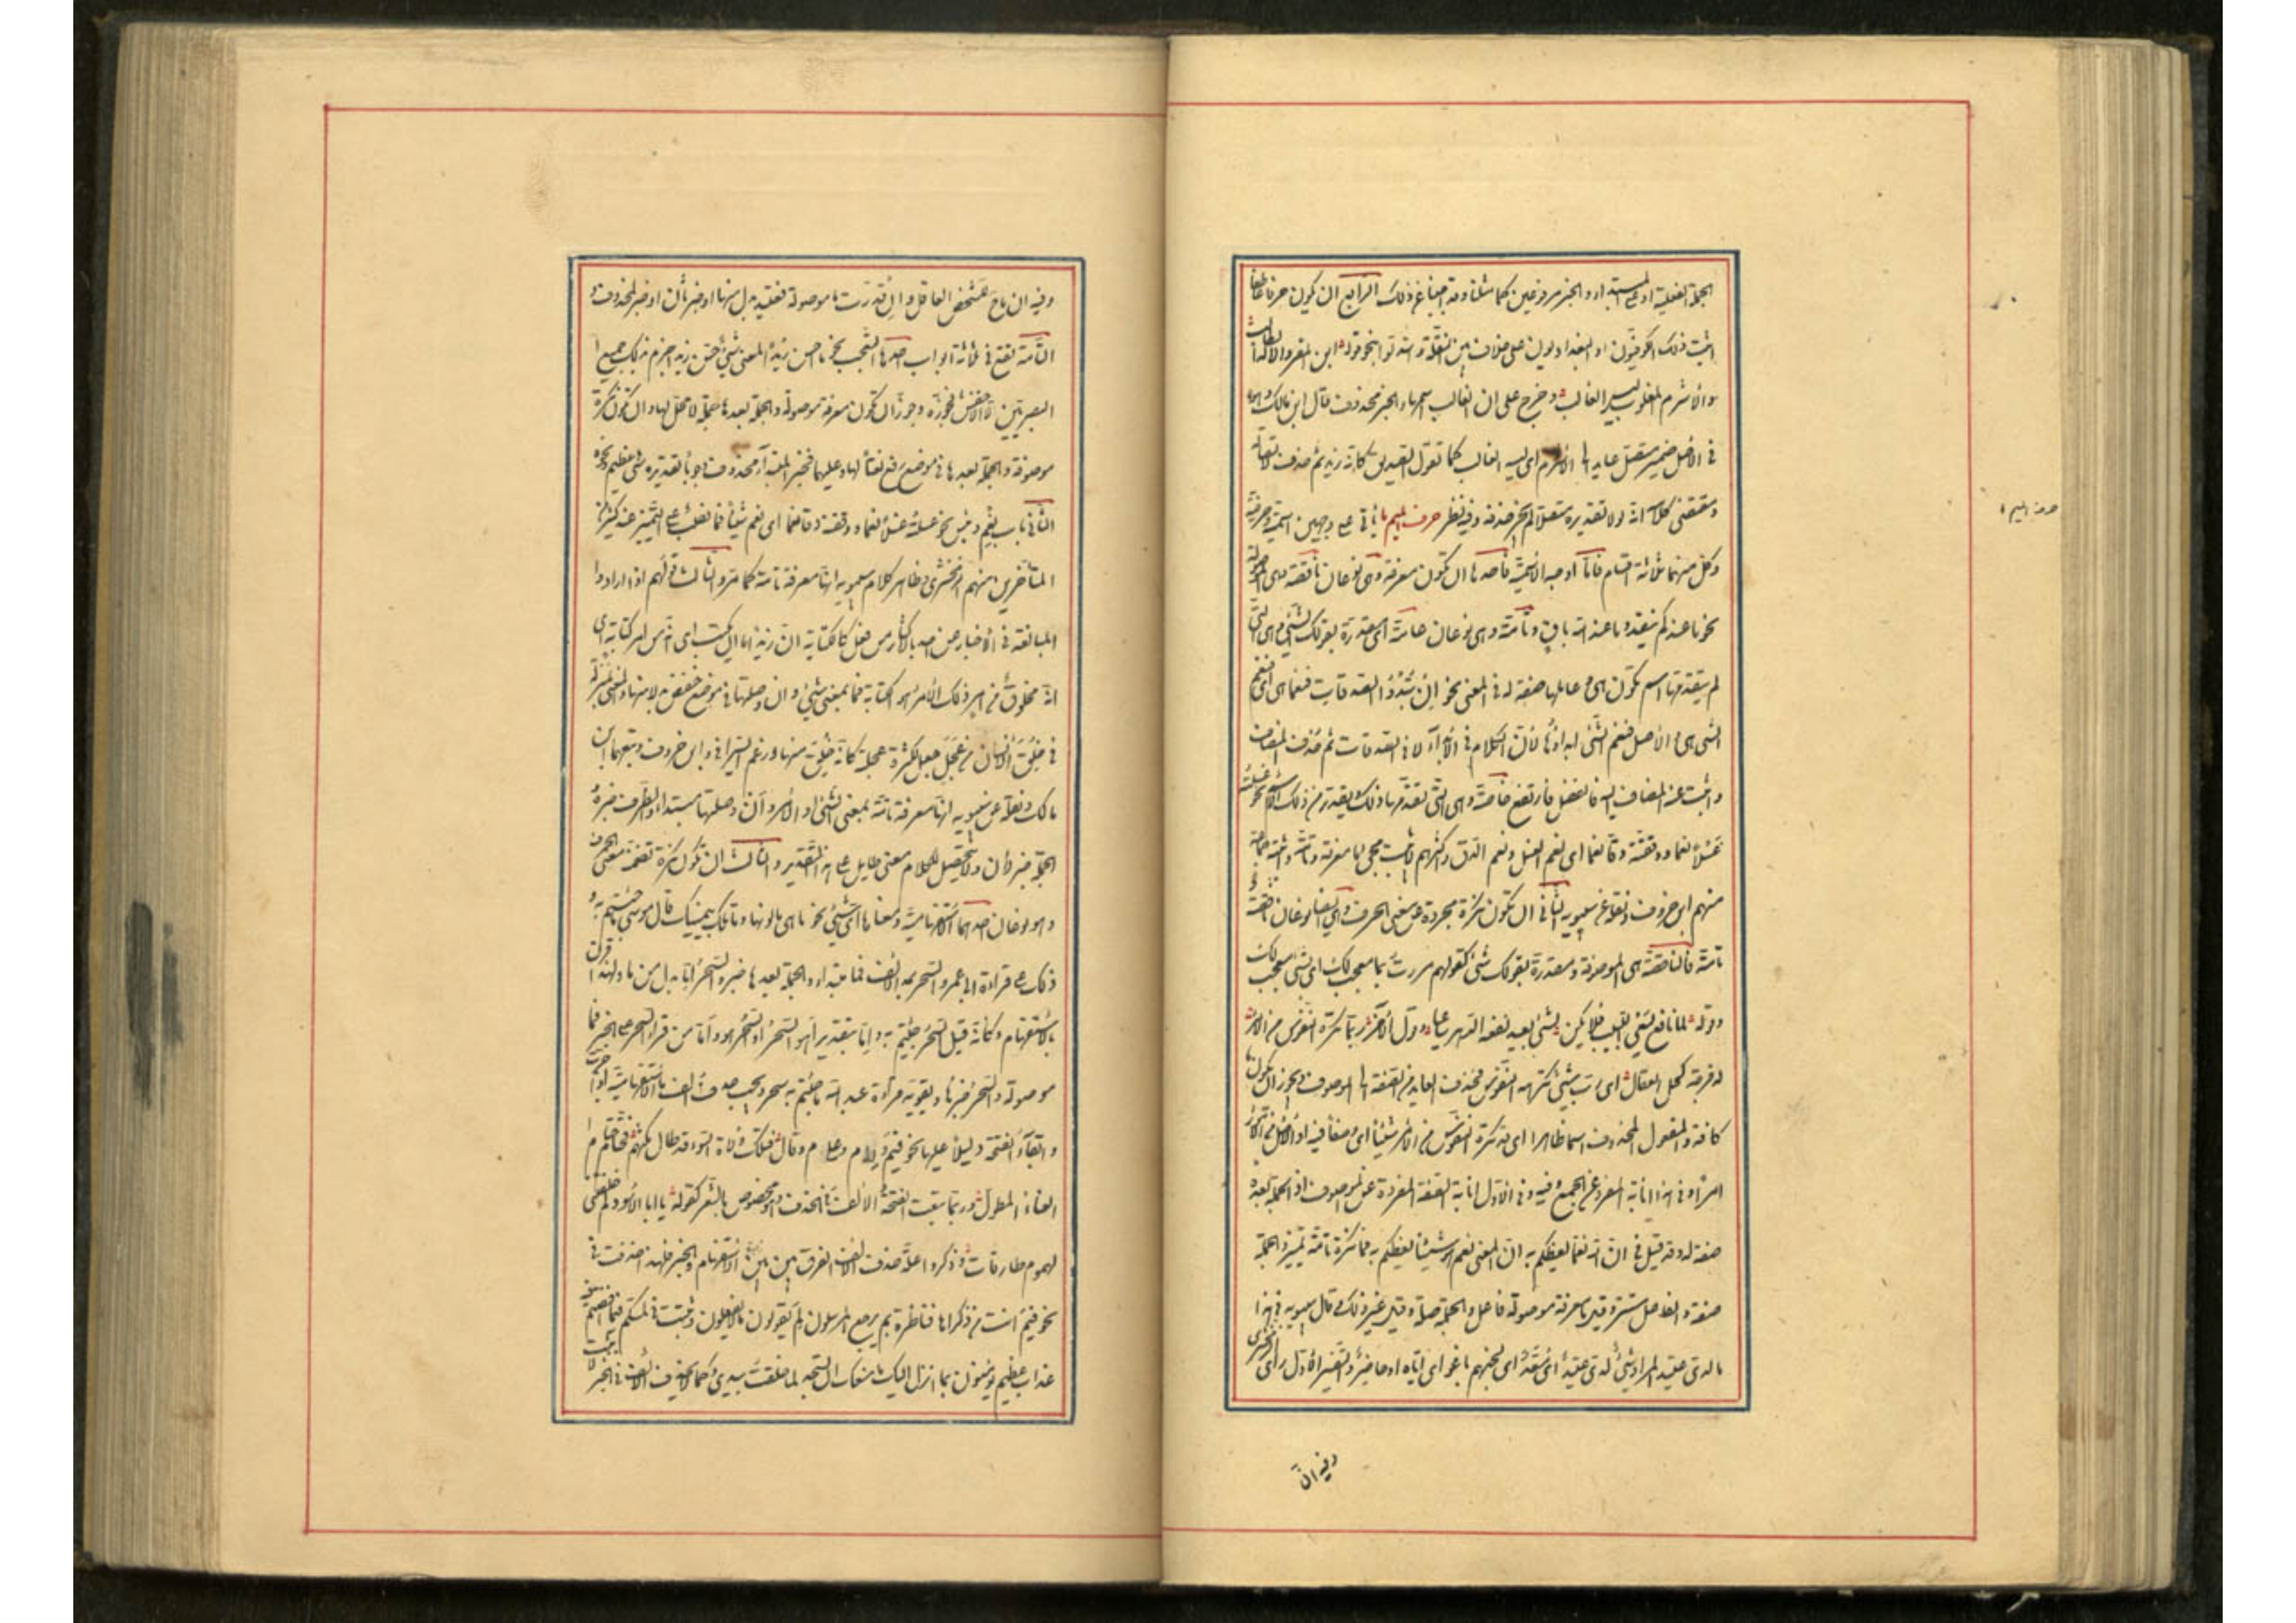 الجملة الفعلية او على المبتداء والخبر مرفوعين كما مثلنا وقد اجبنا عن ذلك الرابع ان يكون حرفا عاطفا
اثبت ذلك الكوفيون او البغداديون على خلاف بين النقلة واستدلوا بنحو قوله اين المفر والاله الطالب
والاشرم المغلوب ليس الغالب وخرج على ان الغالب اسمها والخبر محذوف قال ابن مالك وهو
في الاصل ضمير متصل عايد الى الاشرم اى ليسه الغالب كما تقول الصديق كانه زيد ثم حذف لاتصاله
ومقتضى كلامه انه لولا تقديره متصلا لم يجز حذفه وفيه نظر حرف الميم ما تأتي على وجهين اسمية وحرفية
وكل منهما ثلاثة اقسام فاما اوجه الاسمية فاحدها ان تكون معرفة وهى نوعان ناقصة وهى الموصولة
نحو ما عندكم ينفد وما عند الله باق وتامة وهى نوعان عامة اى مقدرة بقولك الشيء وهى التى
لم يتقدمها اسم تكون هى وعاملها صفة له في المعنى نحو ان تبدوا الصدقات فنعما هى اى فنعم
الشى هى والاصل فنعم الشى ابداؤها لان الكلام في الابداء لا في الصدقات ثم حذف المضاف
وانيب عنه المضاف اليه فانفصل وارتفع وخاصة وهى التى تقدمها ذلك ويقدر من لفظ ذلك الاسم نحو غسلته
غسلا نعما ودققته دقا نعما اى نعم الغسل ونعم الدق واكثرهم لا يثبت مجى ما معرفة وتامة واثبته جماعة
منهم ابن خروف ونقله عن سيبويه الثانى ان تكون نكرة مجردة عن معنى الحرف وهى ايضا نوعان ناقصة و
تامة فالناقصة هى الموصوفة ومقدرة بقولك شئ كقولهم مررت بما معجب لك اى بشئ معجب لك
وقوله لما نافع يسعى اللبيب فلا تكن لشئ بعيد نفعه الدهر ساعيا وقول الاخر ربما تكره النفوس من الامر
له فرجة كحل العقال اى رب شئ تكرهه النفوس فحذف العايد من الصفة الى الموصوف ويجوز ان تكون ما
كافة والمفعول المحذوف اسما ظاهرا اى قد تكره النفوس من الامر شيئا اى وصفا فيه او الاصل من الامور
امرا وفي هذا انابة المفرد عن الجمع وفيه وفى الاول انابة الصفة المفردة عن الموصوف اذ الجملة بعده
صفة له وقد قيل في ان الله نعما يعظكم به ان المعنى نعم هو شيئا يعظكم به فما نكرة تامة تمييز والجملة
صفة والفاعل مستتر وقيل ما معرفة موصولة فاعل والجملة صلة وقيل غير ذلك وقال سيبويه في هذا
ما لدى عتيد المراد شئ لدى عتيد اى معد اى لجهنم باغوائى اياه او حاضر والتفسير الاول راى الزمخشرى
وفيه ان
حرف الميم
وفيه ان ما ح لشخص العاقل وان قدرت ما موصولة فعتيد بدل منها او خبر ثان او خبر لمحذوف و
التامة تقع في ثلاثة ابواب احدها التعجب نحو ما احسن زيدا المعنى شئ حسن زيدا جزم بذلك جميع
البصريين الا الاخفش فجوزه وجوز ان تكون معرفة موصولة والجملة بعدها صلة لا محل لها وان تكون نكرة
موصوفة والجملة بعدها في موضع رفع نعتا لها وعليهما فخبر المبتداء محذوف وجوبا تقديره شئ عظيم ونحوه
الثانى باب نعم وبئس نحو غسلته غسلا نعما ودققته دقا نعما اى نعم شيئا فما نصب على التمييز عند كثير من
المتأخرين منهم الزمخشرى وظاهر كلام سيبويه انها معرفة تامة كما مر والثالث قولهم اذا ارادوا
المبالغة في الاخبار عن احد بالاكثار من فعل كالكتابة ان زيدا مما ان يكتب اى انه من امر كتابة اى
انه مخلوق من امر ذلك الامر هو الكتابة فما بمعنى شئ وان وصلتها في موضع خفض بدل منها والمعنى بمنزلة
في خلق الانسان من عجل جعل لكثرة عجلته كانه خلق منها وزعم السيرافى وابن خروف وتبعهما ابن
مالك ونقله عن سيبويه انها معرفة تامة بمعنى الشئ او الامر وان وصلتها مبتداء والظرف خبره و
الجملة خبر لان ولا يتحصل للكلام معنى طايل على هذا التقدير والثالث ان تكون نكرة تضمنت معنى الحرف
وهو نوعان احدهما الاستفهامية ومعناها اى شئ نحو ما هى ما لونها وما تلك بيمينك قال موسى ما جئتم به و
ذلك على قراءة ابى عمرو السحر بمد الالف فما مبتداء والجملة بعدها خبر والسحر اما بدل من ما ولهذا قرن
بالاستفهام وكانه قيل السحر جئتم به واما بتقدير اهو السحر او السحر هو واما من قرا السحر على الخبر فما
موصولة والسحر خبرها ويقويه قراءة عبد الله ما جئتم به سحر ويجب حذف الف ما الاستفهامية اذا جرت
وابقاء الفتحة دليلا عليها نحو فيم والام وعلام وقال فتلك ولاة السوء قد طال مكثهم فحتام حتام
العناء المطول وربما تبعت الفتحة الالف في الحذف وهو مخصوص بالشعر كقوله يا ابا الاسود لم خلفتنى
لهموم طارقات وذكر وعلة حذف الالف الفرق بين الاستفهام والخبر فلهذا حذفت في
نحو فيم انت من ذكراها فناظرة بم يرجع المرسلون لم تقولون ما لا تفعلون وثبتت في لمسكم فيما افضتم فيه
عذاب عظيم يؤمنون بما انزل اليك ما منعك ان تسجد لما خلقت بيدى وكما لا تحذف الالف في الخبر لا تثبت